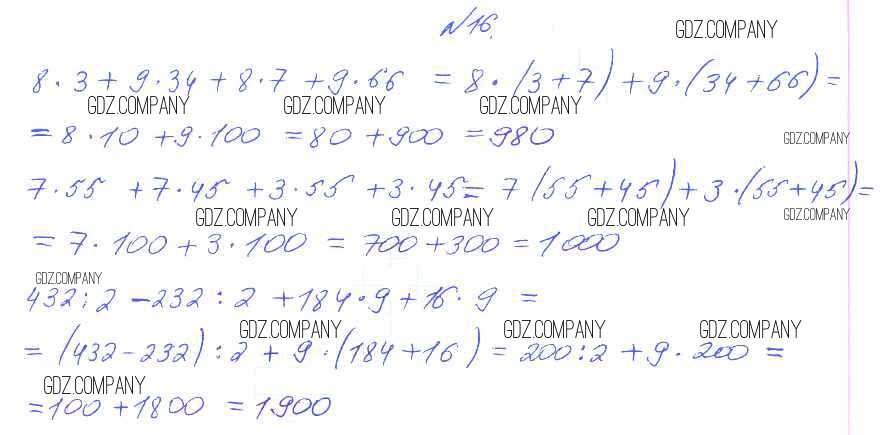 №16.
GDZ.COMPANY
8 · 3 + 9 · 34 + 8 · 7 + 9 · 66 = 8 · (3 + 7) + 9 · (34 + 66) =
GDZ.COMPANY GDZ.COMPANY GDZ.COMPANY
= 8 · 10 + 9 · 100 = 80 + 900 = 980
GDZ.COMPANY
7 · 55 + 7 · 45 + 3 · 55 + 3 · 45 = 7 (55 + 45) + 3 · (55 + 45) =
GDZ.COMPANY GDZ.COMPANY GDZ.COMPANY GDZ.COMPANY
= 7 · 100 + 3 · 100 = 700 + 300 = 1000
GDZ.COMPANY
432 : 2 - 232 : 2 + 184 · 9 + 16 · 9 =
GDZ.COMPANY GDZ.COMPANY GDZ.COMPANY
= (432 - 232) : 2 + 9 · (184 + 16) = 200 : 2 + 9 · 200 =
GDZ.COMPANY
= 100 + 1800 = 1900